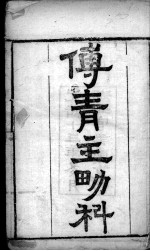 傅青主男科